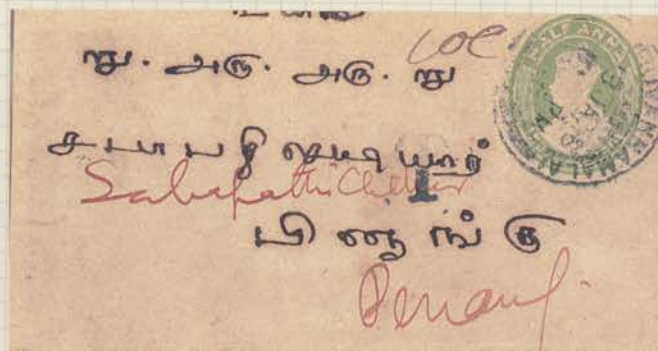 10c
HALF ANNA
று. அரு. அரு. று
சபாபதி செட்டியார்
Sabapathi Chettiar
T
பினாங்கு
Penang.